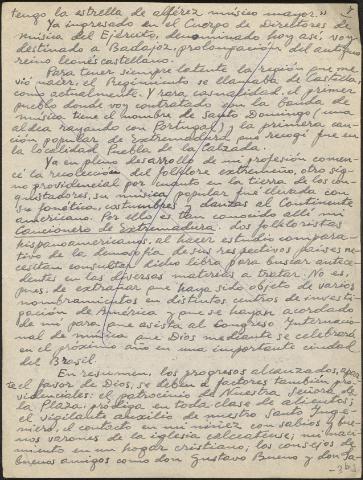 tengo la estrella de alférez músico mayor."
Ya ingresado en el Cuerpo de Directores de
música del Ejército, denominado hoy así, voy
destinado a Badajoz, prolongación del antiguo
reino leonés castellano.
Para tener siempre latente la región que me
vió nacer, el Regimiento se llamaba de Castilla
como actualmente. Y rara casualidad, el primer
pueblo donde voy contratado con la banda de
música tiene el nombre de Santo Domingo (una
aldea rayando con Portugal) y la primera can-
ción popular de Extremadura la recogí fue en
la localidad Puebla de la Calzada.
Ya en pleno desarrollo de mi profesión comen-
cé la recolección del folklore extremeño, obra sig-
no providencial por cuanto en la tierra de los con-
quistadores su música popular fué llevada con
su política, costumbres y danzas al Continente
americano. Por ello, es tan conocido allí mi
Cancionero de Extremadura: Los folkloristas
hispanoamericanos, al hacer estudio compara-
tivo de la demosofía de sus respectivos países, ne-
cesitan consultar dicho libro para buscar antece-
dentes en las diversas materias a tratar. No es,
pues, de extrañar que haya sido objeto de varios
nombramientos en distintos centros de investi-
gación de América y que se hayan acordado
de mí para que asista al Congreso Internacio-
nal de música que Dios mediante se celebrará
en el próximo año en una importante ciudad
del Brasil.
En resumen, los progresos alcanzados, apar-
te el favor de Dios, se deben a factores también pro-
videnciales: el patrocinio de Nuestra Señora de
la Plaza, pródiga en toda clase de alientos;
el vigilante abogado de nuestro Santo Inge-
niero, el contacto en mi niñez con sabios y bue-
nos varones de la iglesia calceatense; mi naci-
miento en un hogar cristiano; los consejos de
buenos amigos como don Gustavo Bueno y don Ja-